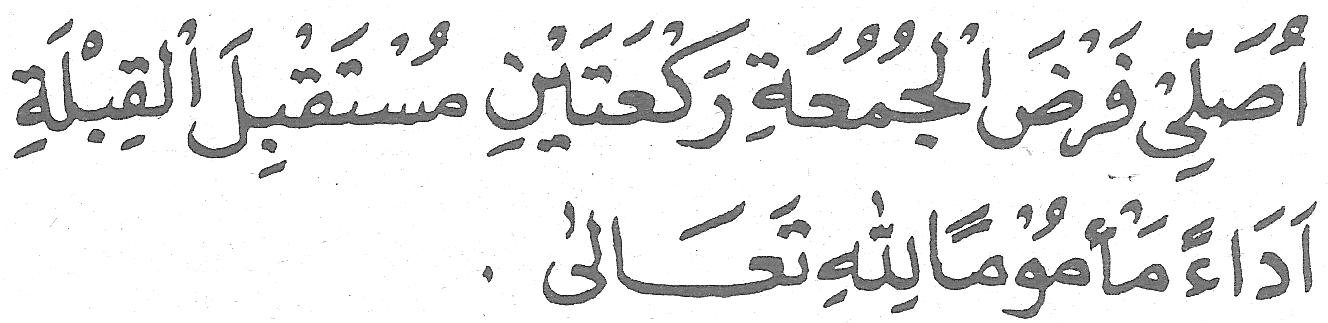 اُصَلِّيْ فَرْضَ الْجُمُعَةِ رَكْعَتَيْنِ مُسْتَقْبِلَ الْقِبْلَةِ
اَدَاءً مَأْمُوْمًا لِلّٰهِ تَعَالىٰ .